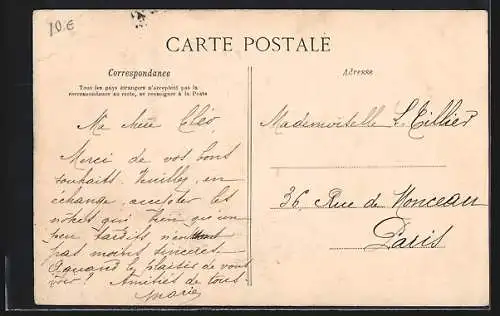 10 €
CARTE POSTALE
Correspondance
Tous les pays étrangers n'acceptent pas la
correspondance au recto, se renseigner à la Poste
Adresse
Ma chère Cléo
Merci de vos bons
souhaits. Veuillez en
échange, accepter les
nôtres qui bien qu'un
peu tardifs n'en sont
pas moins sincères
Quand le plaisir de vous
voir ? Amitiés de tous
Marie
Mademoiselle L. Tillier
36, Rue de Monceau
Paris